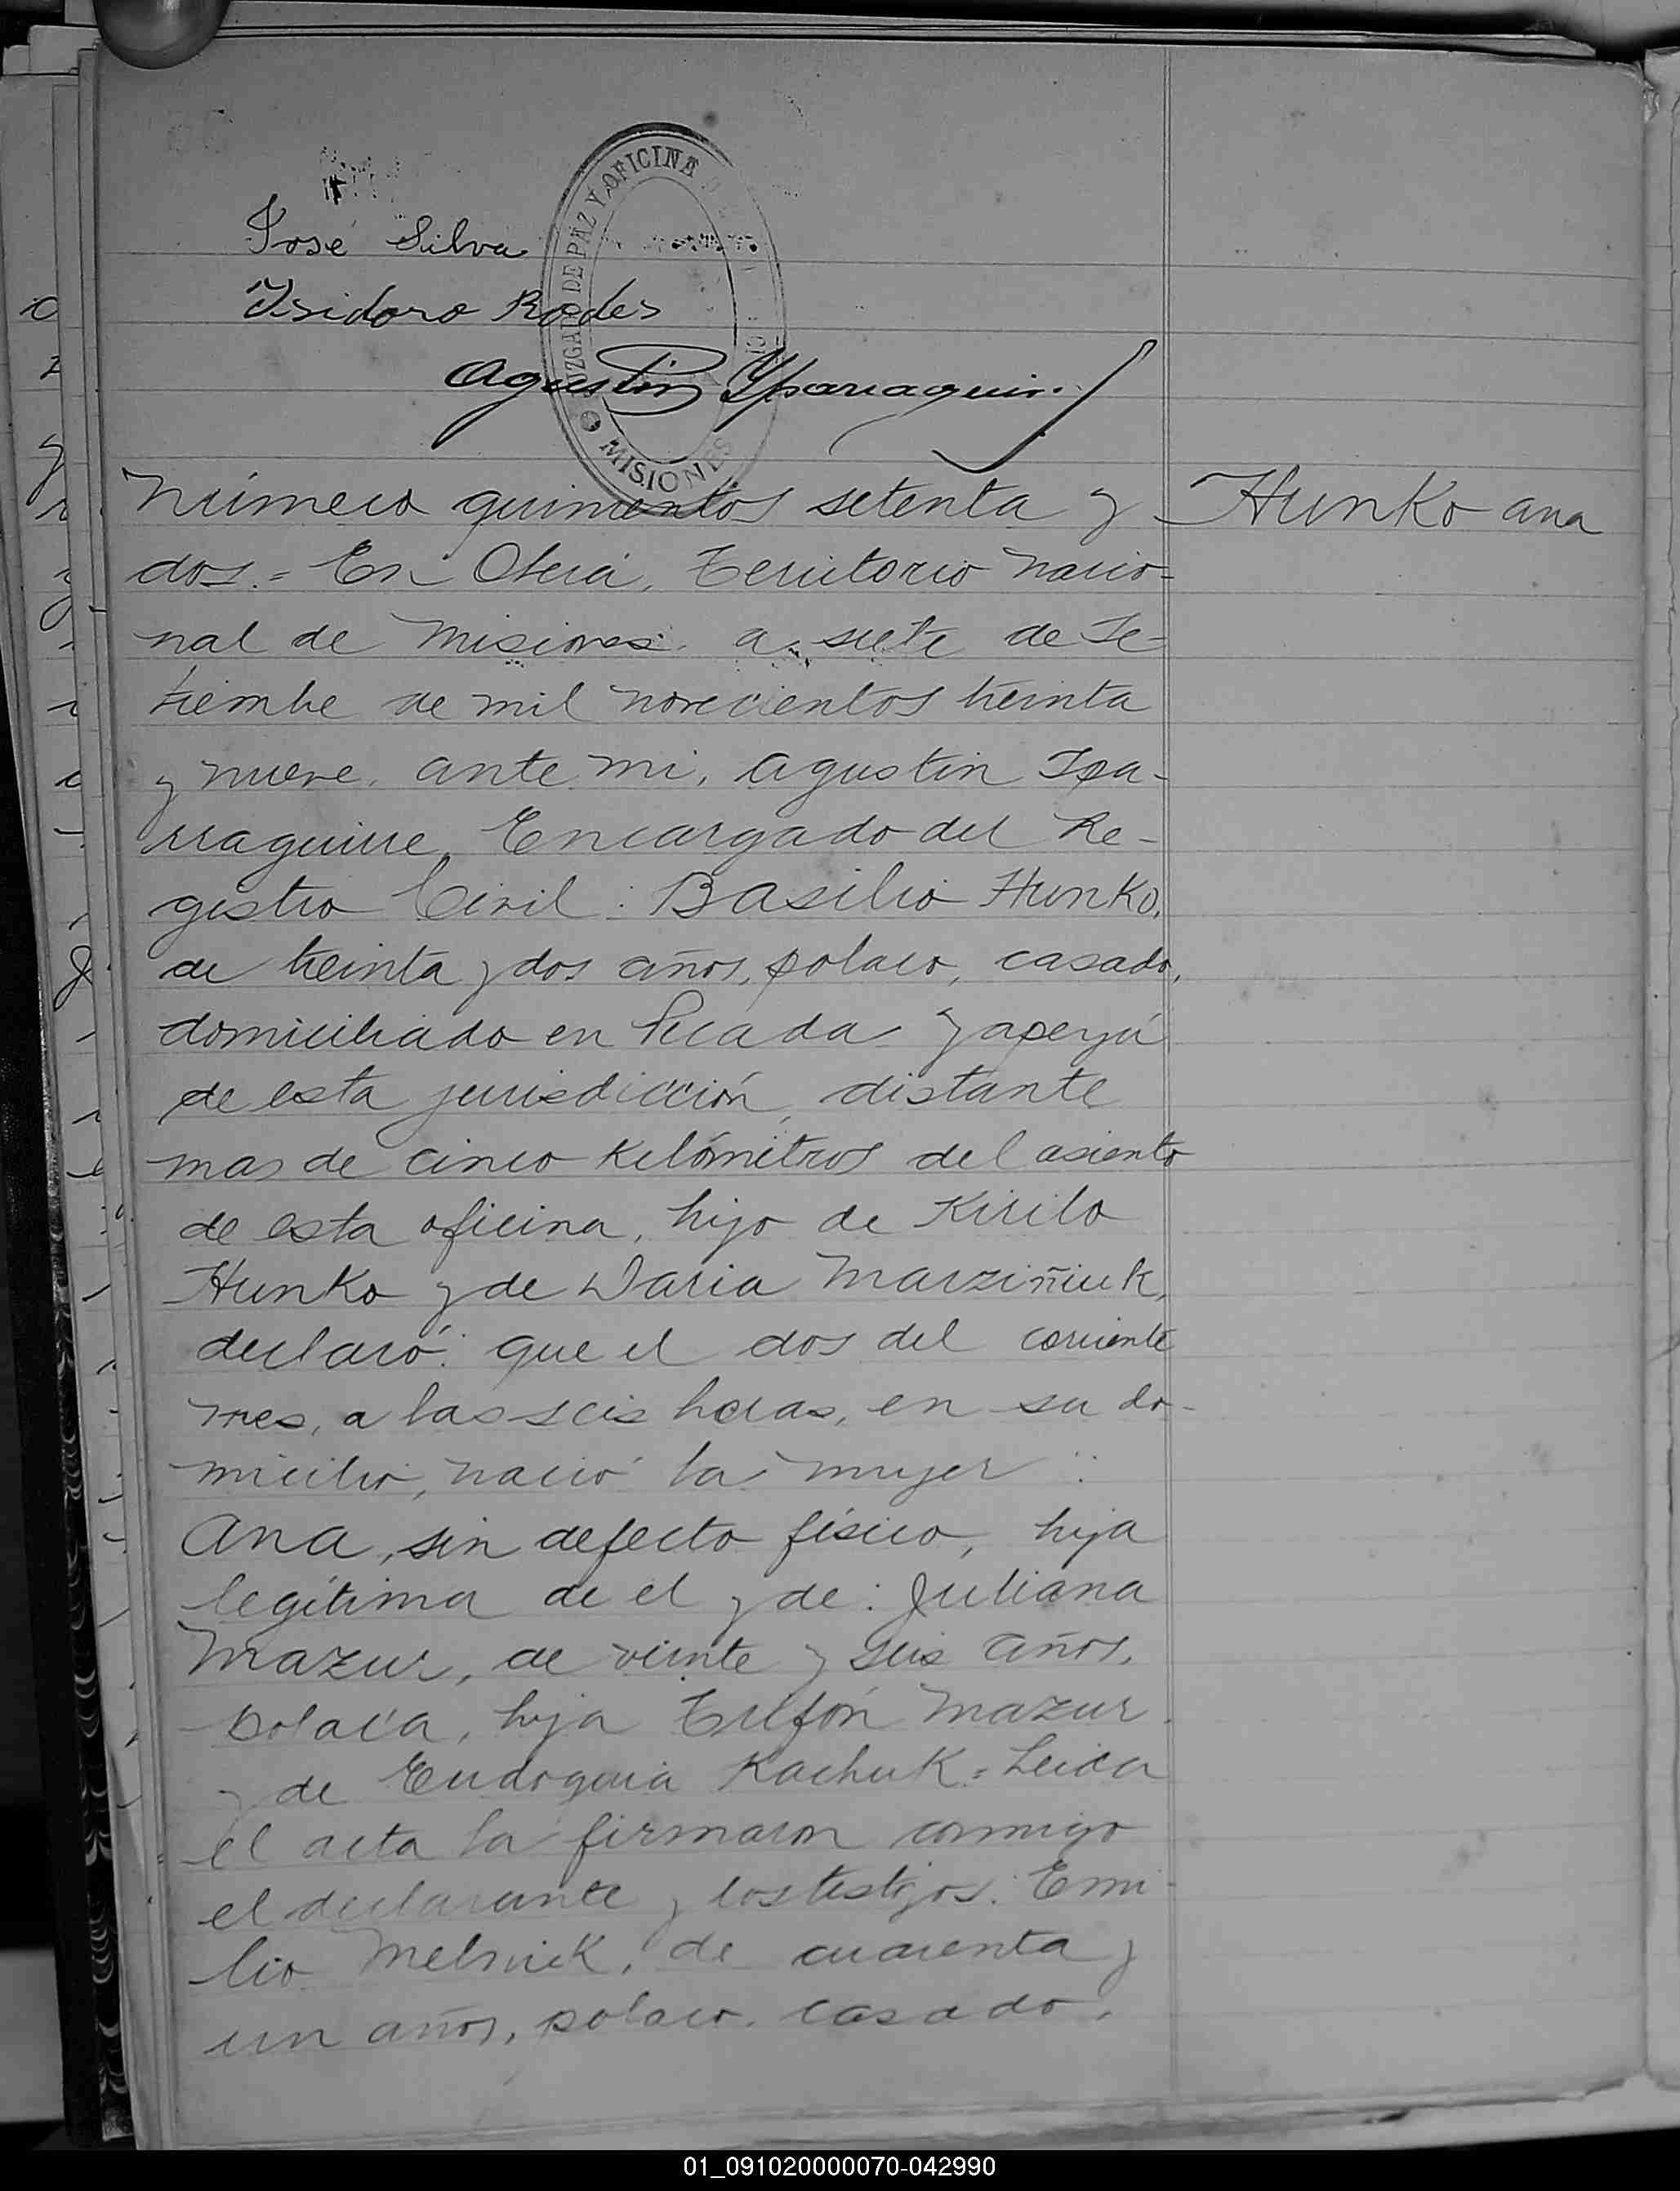 José Silva
Isidoro Rodes
Agustin Yparraguirre
JUZGADO DE PAZ Y OFICINA
MISIONES
Número quinientos setenta y
Hunko Ana
dos.= En Oberá, Territorio Nacio-
nal de Misiones. a siete de Se-
tiembre de mil novecientos treinta
y nueve. ante mi, Agustin Ipa-
rraguirre, Encargado del Re-
gistro Civil: Basilio Hunko,
de treinta y dos años, polaco, casado,
domiciliado en Picada Yapeyú
de esta jurisdicción, distante
mas de cinco kilómetros del asiento
de esta oficina, hijo de Kirilo
Hunko y de Daria Marziñiuk,
declaró: que el dos del corriente
mes, a las seis horas, en su do-
micilio, nació la mujer :
Ana, sin defecto físico, hija
legítima de el y de: Juliana
Mazur, de veinte y seis años,
polaca, hija Trifón Mazur
y de Eudoquia Kachuk= Leida
el acta la firmaron conmigo
el declarante y los testigos: Emi-
lio Melnik, de cuarenta y
un años, polaco. casado,
01_091020000070-042990